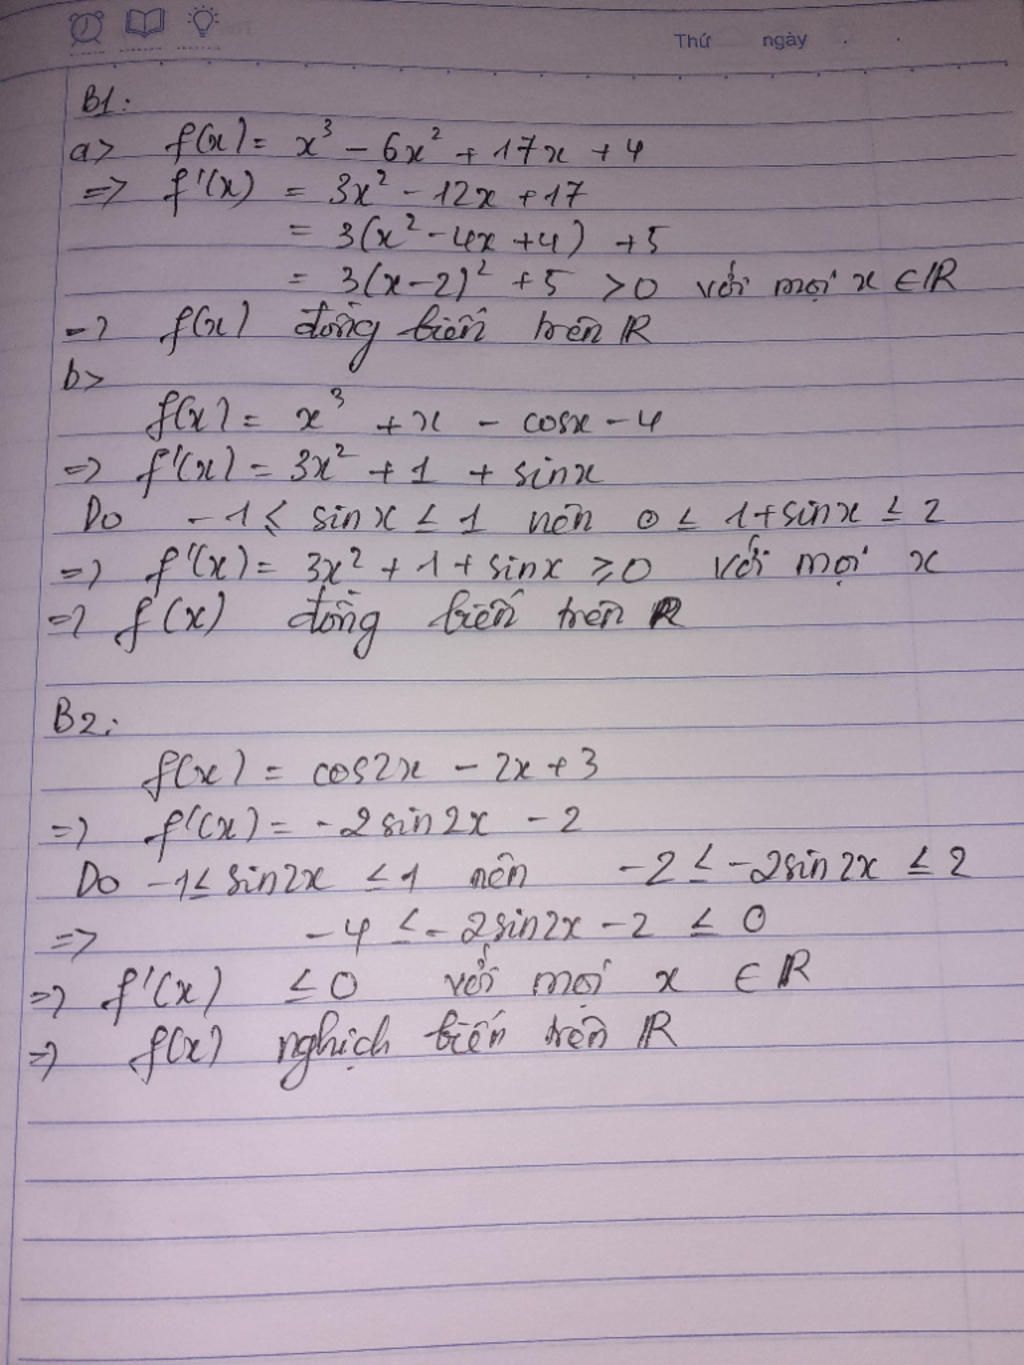 Thứ ngày
B1:
a> f(x) = x³ - 6x² + 17x + 4
=> f'(x) = 3x² - 12x + 17
= 3(x² - 4x + 4) + 5
= 3(x - 2)² + 5 > 0 với mọi x ∈ R
=> f(x) đồng biến trên R
b>
f(x) = x³ + x - cosx - 4
=> f'(x) = 3x² + 1 + sinx
Do -1 ≤ sinx ≤ 1 nên 0 ≤ 1 + sinx ≤ 2
=> f'(x) = 3x² + 1 + sinx ≥ 0 với mọi x
=> f(x) đồng biến trên R
B2:
f(x) = cos2x - 2x + 3
=> f'(x) = -2sin2x - 2
Do -1 ≤ sin2x ≤ 1 nên -2 ≤ -2sin2x ≤ 2
=> -4 ≤ -2sin2x - 2 ≤ 0
=> f'(x) ≤ 0 với mọi x ∈ R
=> f(x) nghịch biến trên R